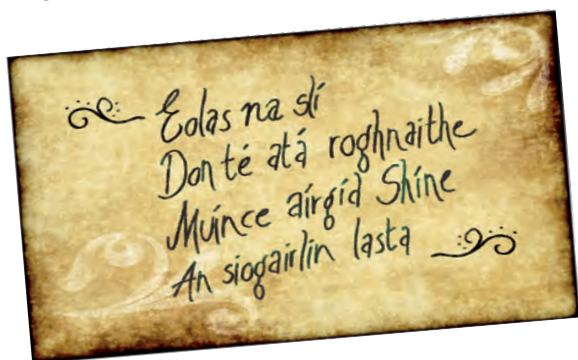 Eolas na slí
Don té atá roghnaithe
Muince airgid Shíne
An siogairlin lasta